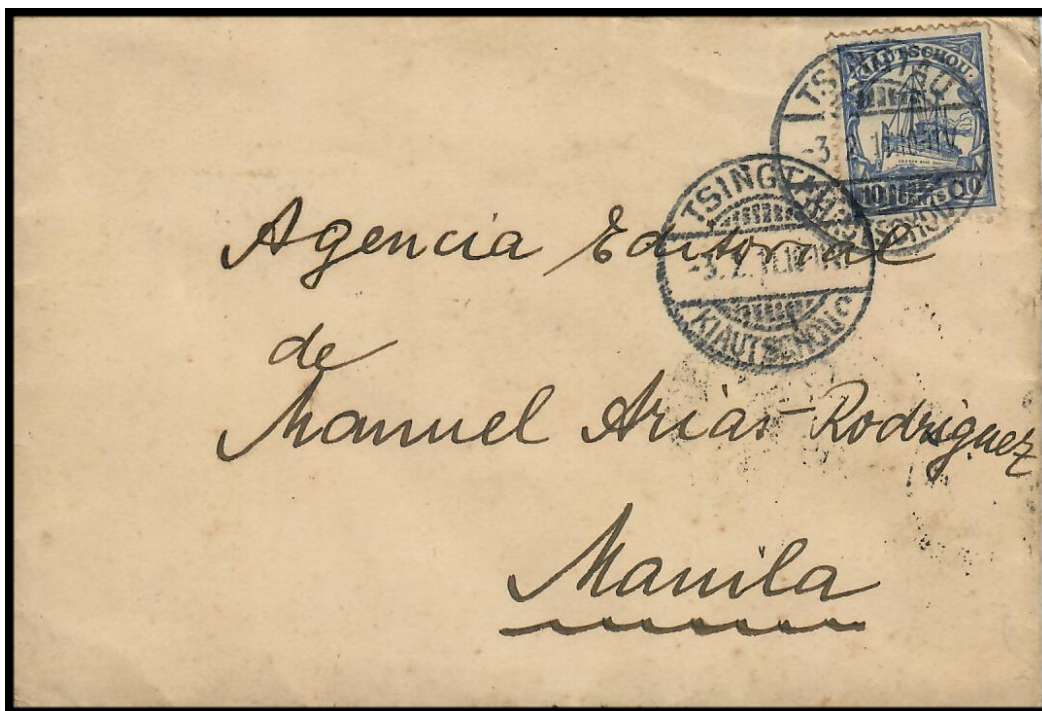 KIAUTSCHOU
10 CENTS 10
TSINGTAU
KIAUTSCHOU
TSINGTAU
KIAUTSCHOU
Agencia Editorial
de
Manuel Arias Rodriguez
Manila